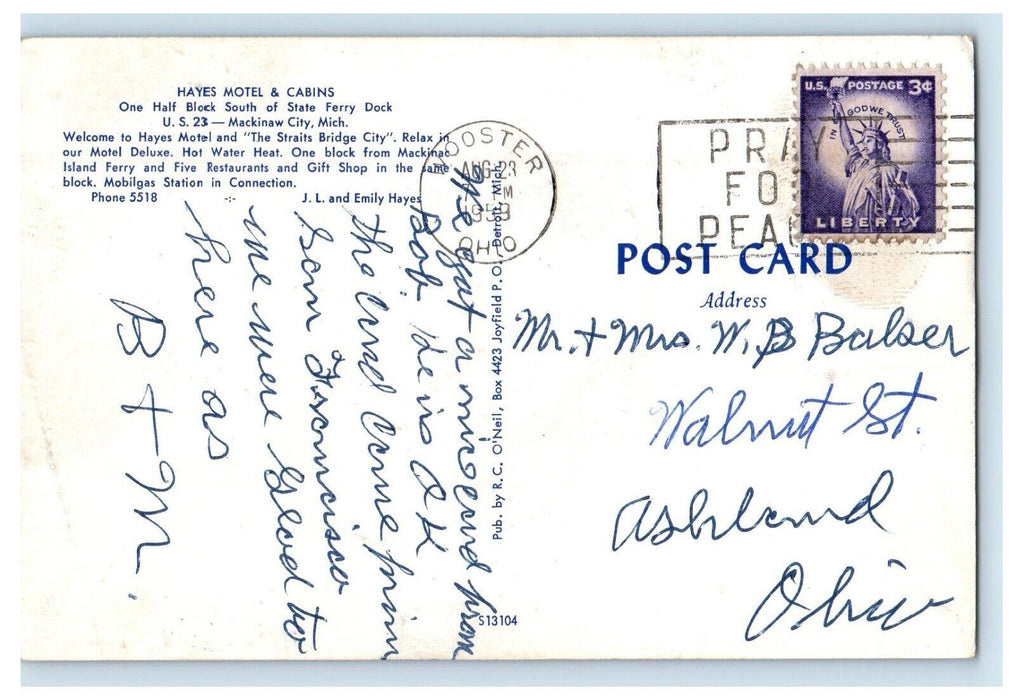 HAYES MOTEL & CABINS
One Half Block South of State Ferry Dock
U. S. 23 — Mackinaw City, Mich.
Welcome to Hayes Motel and "The Straits Bridge City". Relax in
our Motel Deluxe. Hot Water Heat. One block from Mackinac
Island Ferry and Five Restaurants and Gift Shop in the same
block. Mobilgas Station in Connection.
Phone 5518 -:- J. L. and Emily Hayes
WOOSTER
AUG 23
PM
OHIO
PRAY
FO
PEA
U.S. POSTAGE 3¢
IN GOD WE TRUST
LIBERTY
POST CARD
Address
Mr. + Mrs. W. B Balser
Walnut St.
Ashland
Ohio
We got a nice card from
Bob. He is O K
the card came from
San Francisco
we were glad to
here as
B + M.
Pub. by R. C. O'Neil, Box 4423 Joyfield P. O., Detroit, Mich.
S13104